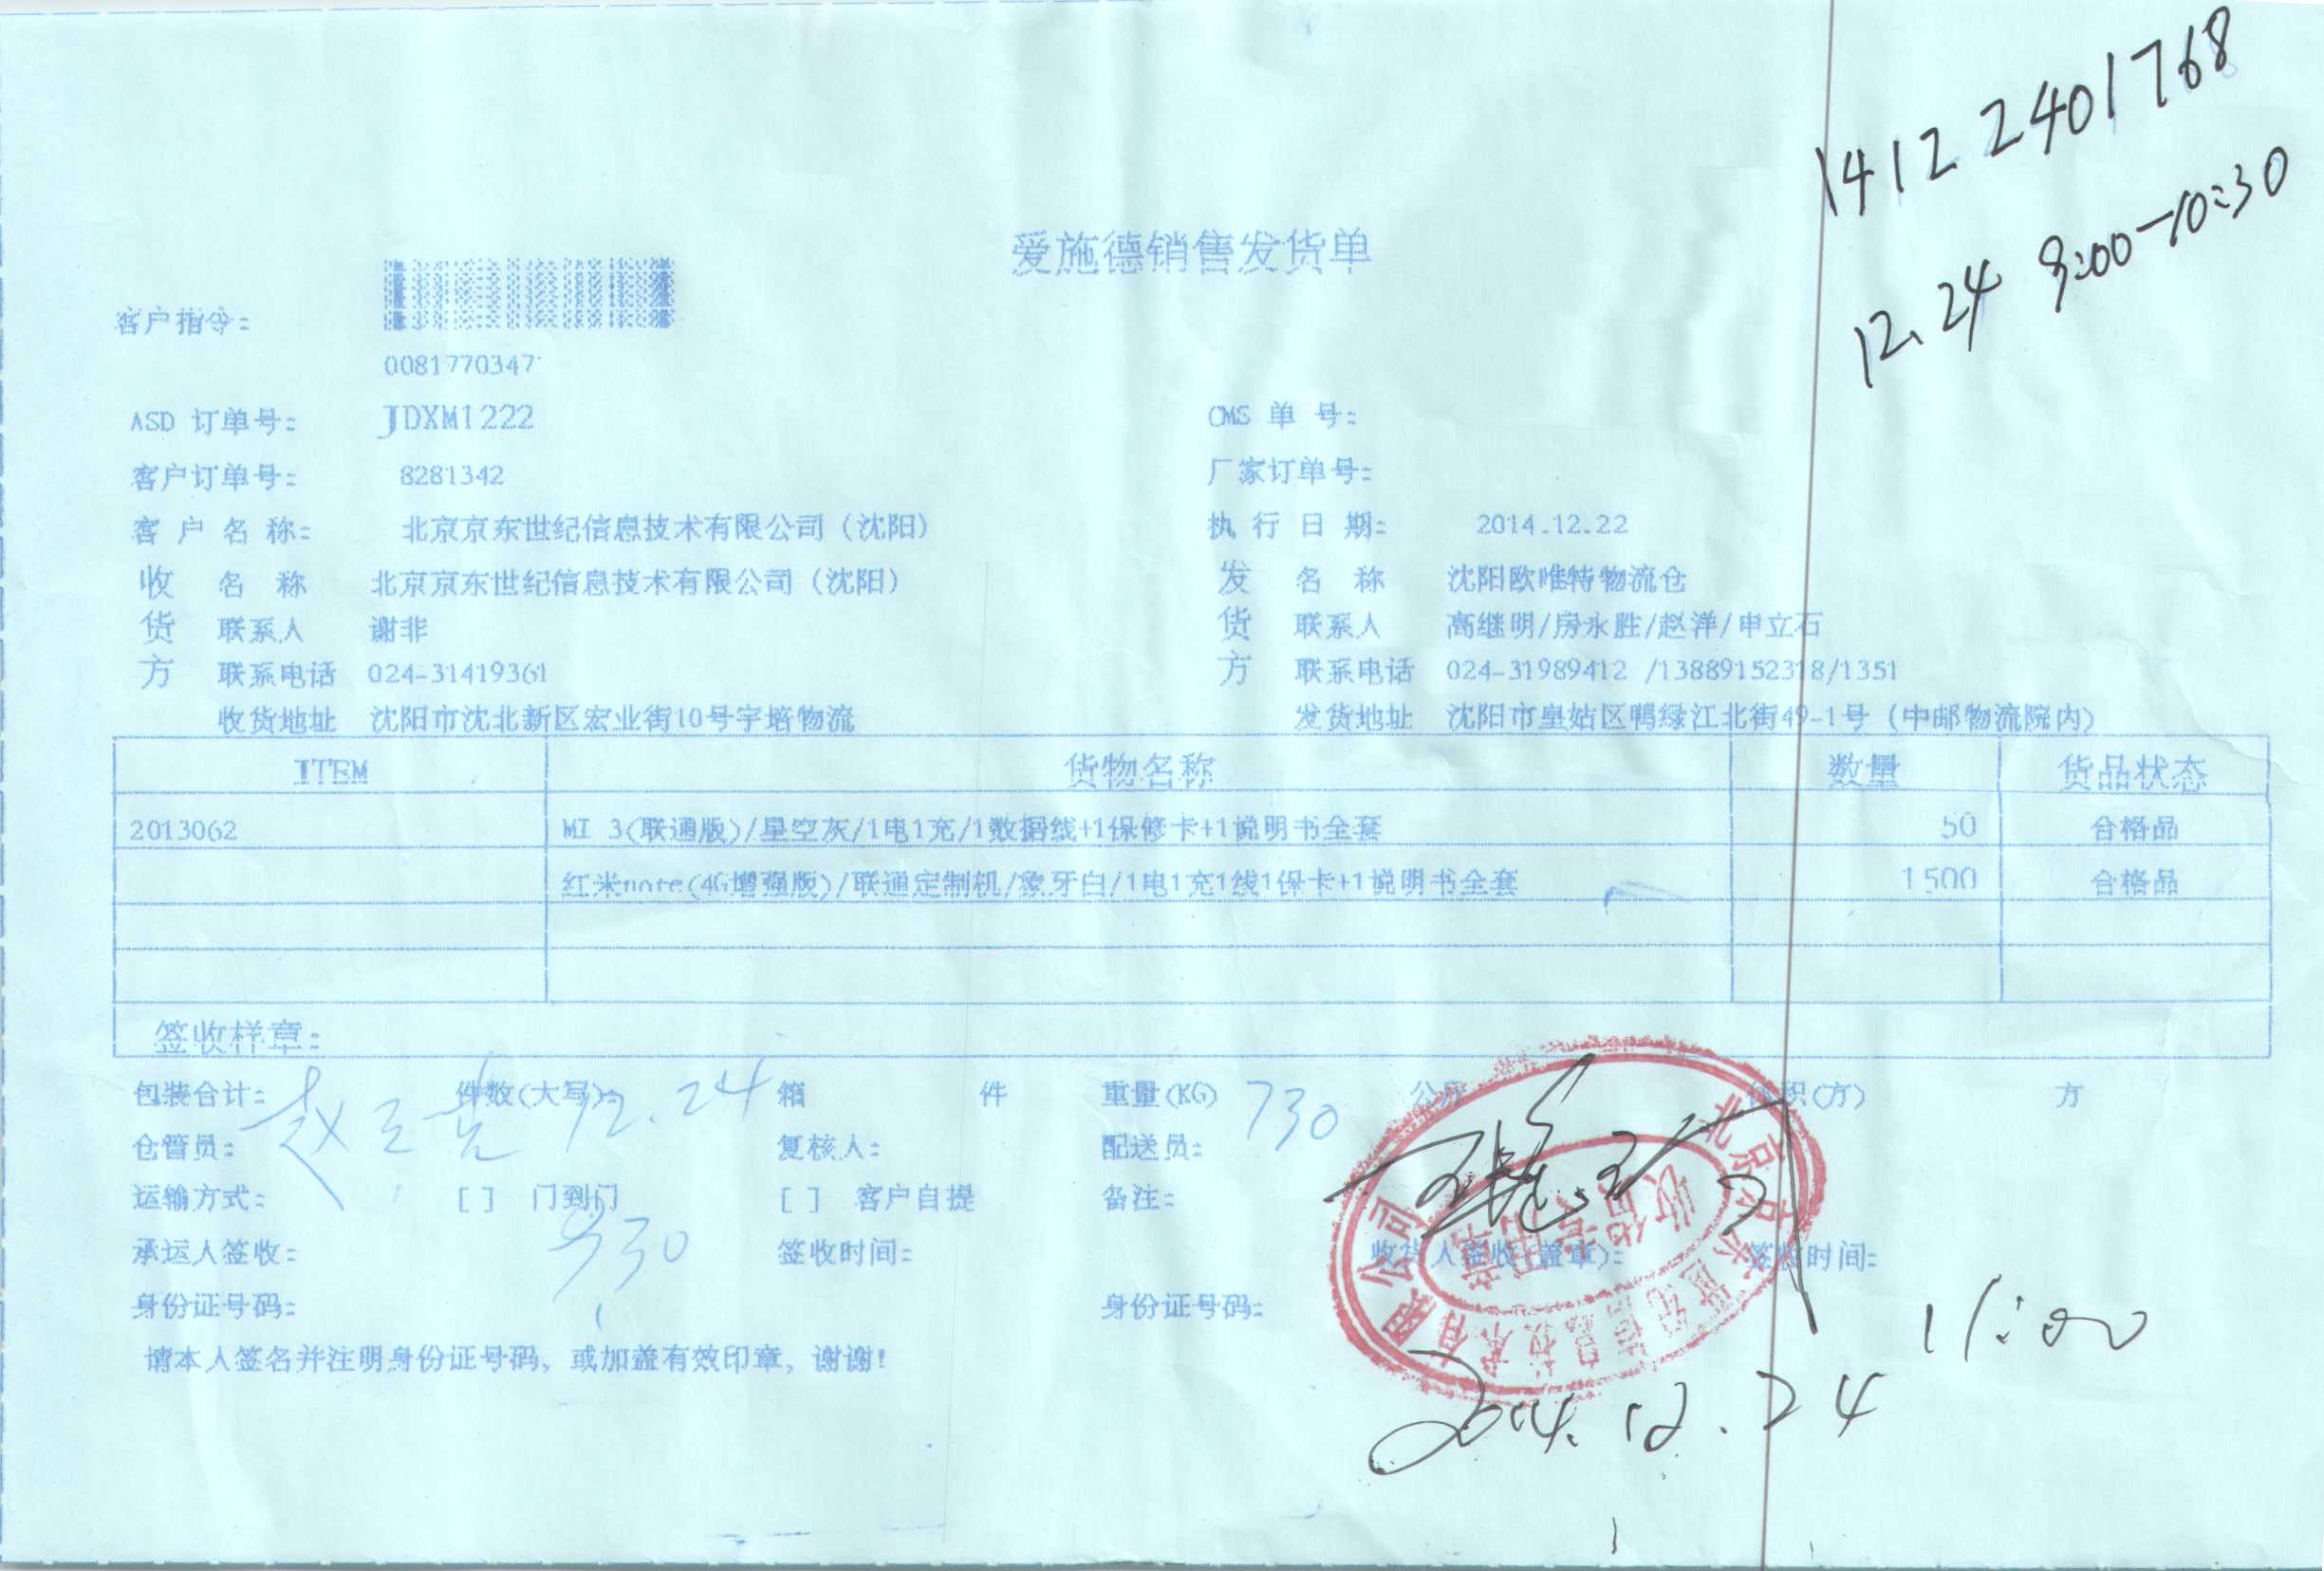 14122401768
12.24 9:00-10:30
爱施德销售发货单
客户指令:
0081770347
ASD 订单号: JDXM1222 CMS 单 号:
客户订单号: 8281342 厂家订单号:
客 户 名 称: 北京京东世纪信息技术有限公司（沈阳） 执 行 日 期: 2014.12.22
收 名 称 北京京东世纪信息技术有限公司（沈阳） 发 名 称 沈阳欧唯特物流仓
货 联系人 谢非 货 联系人 高继明/房永胜/赵洋/申立石
方 联系电话 024-31419361 方 联系电话 024-31989412 /13889152318/1351
收货地址 沈阳市沈北新区宏业街10号宇培物流 发货地址 沈阳市皇姑区鸭绿江北街49-1号（中邮物流院内）
ITEM 货物名称 数量 货品状态
2013062 MI 3(联通版)/星空灰/1电1充/1数据线+1保修卡+1说明书全套 50 合格品
红米note(4G增强版)/联通定制机/象牙白/1电1充1线1保卡+1说明书全套 1500 合格品
签收样章:
包装合计: 件数(大写): 12.24 箱 件 重量(KG) 730 公斤 体积(方) 方
仓管员: 复核人: 配送员:
运输方式: [ ] 门到门 [ ] 客户自提 备注:
承运人签收: 930 签收时间: 收货人签收(盖章): 签收时间:
身份证号码: 身份证号码:
11:00
请本人签名并注明身份证号码，或加盖有效印章，谢谢!
2014.12.24
北京京东世纪信息技术有限公司